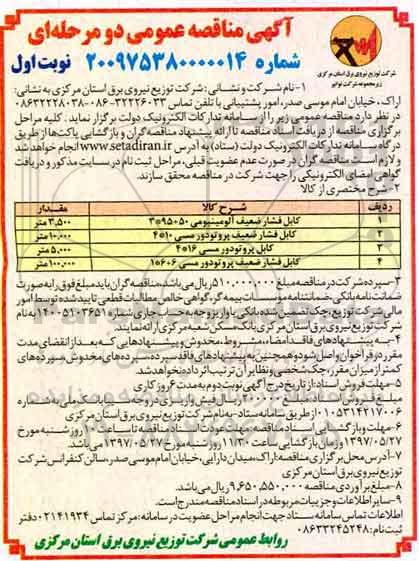 آگهی مناقصه عمومی دو مرحله‌ای
شماره ۲۰۰۹۷۵۳۸۰۰۰۰۰۱۴ نوبت اول
شرکت توزیع نیروی برق استان مرکزی
۱-نام شرکت و نشانی: شرکت توزیع نیروی برق استان مرکزی به نشانی:
اراک، خیابان امام موسی صدر، امور پشتیبانی با تلفن تماس ۳۲۲۲۶۰۳۳-۰۸۶ ۰۸۶۳۲۲۲۸۰۳۸
در نظر دارد مناقصه عمومی زیر را از سامانه تدارکات الکترونیک دولت برگزار نماید. کلیه مراحل
برگزاری مناقصه از دریافت اسناد مناقصه تا ارائه پیشنهاد مناقصه گران و بازگشایی پاکت‌ها از طریق
درگاه سامانه تدارکات الکترونیک دولت (ستاد) به آدرس www.setadiran.ir انجام خواهد شد
و لازم است مناقصه گران در صورت عدم عضویت قبلی، مراحل ثبت نام در سایت مذکور و دریافت
گواهی امضای الکترونیکی را جهت شرکت در مناقصه محقق سازند.
۲-شرح مختصری از کالا
ردیف شرح کالا مقدار
۱ کابل فشار ضعیف آلومینیومی ۵۰+۹۵*۳ ۳,۵۰۰ متر
۲ کابل فشار ضعیف پروتودور مسی ۱۰*۴ ۱۰,۰۰۰ متر
۳ کابل پروتودور مسی ۱۶*۴ ۵,۰۰۰ متر
۴ کابل فشار ضعیف پروتودور مسی ۶*۱۰ ۱۰۰,۰۰۰ متر
۳-سپرده شرکت در مناقصه مبلغ ۵۱۰,۰۰۰,۰۰۰ ریال می‌باشد، مناقصه گران باید مبلغ فوق را به صورت
ضمانت نامه بانکی، ضمانتنامه موسسات بیمه گر، گواهی خالص مطالبات قطعی تایید شده توسط امور
مالی شرکت توزیع، چک تضمین شده بانکی یا واریز وجه به حساب جاری شماره ۱۴۰۰۵۱۰۳۶۵۱ به نام
شرکت توزیع نیروی برق استان مرکزی بانک مسکن شعبه مرکزی ارائه نمایند.
۴-به پیشنهادهای فاقد امضاء، مشروط، مخدوش و پیشنهادهایی که بعد از انقضای مدت
مقرر در فراخوان واصل شود و همچنین به پیشنهادهای فاقد سپرده، سپرده‌های مخدوش، سپرده‌های
کمتر از میزان مقرر، چک شخصی و نظایر آن ترتیب اثر داده نخواهد شد.
۵-مهلت فروش اسناد: از تاریخ درج آگهی نوبت دوم به مدت ۶ روز کاری
۰۱۰۵۳۱۴۲۱۷۰۰۶ از طریق سامانه ستاد-به نام شرکت توزیع نیروی برق استان مرکزی
۶-مهلت و بازگشایی اسناد مناقصه: مهلت عودت اسناد مناقصه تا ساعت روز شنبه مورخ
۱۳۹۷/۰۵/۲۷ و زمان بازگشایی ساعت ۱۱/۳۰ می‌باشد.
۷-آدرس محل برگزاری مناقصه: اراک، میدان دارایی، خیابان امام موسی صدر، سالن کنفرانس شرکت
توزیع نیروی برق استان مرکزی
۸-مبلغ برآوردی مناقصه ۹,۶۵۰,۵۵۰,۰۰۰ ریال می‌باشد.
۹-سایر اطلاعات و جزییات مربوطه در اسناد مناقصه مندرج است.
اطلاعات تماس سامانه ستاد جهت انجام مراحل عضویت در سامانه: مرکز تماس ۰۲۱۴۱۹۳۴ دفتر
ثبت نام: ۰۸۶۳۳۲۴۵۲۴۸
روابط عمومی شرکت توزیع نیروی برق استان مرکزی